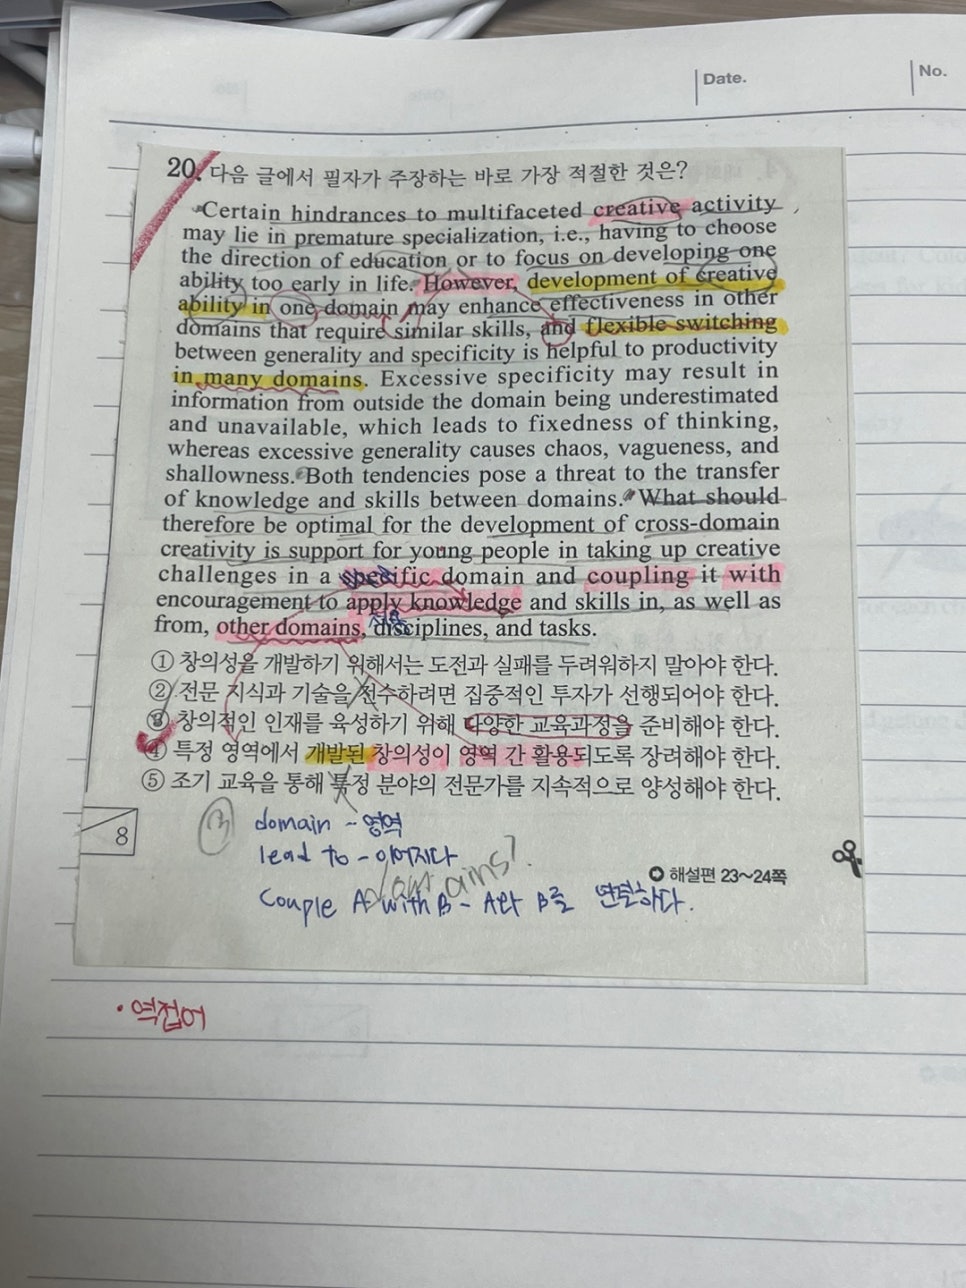 Date.
No.
20. 다음 글에서 필자가 주장하는 바로 가장 적절한 것은?
Certain hindrances to multifaceted creative activity
may lie in premature specialization, i.e., having to choose
the direction of education or to focus on developing one
ability too early in life. However, development of creative
ability in one domain may enhance effectiveness in other
domains that require similar skills, and flexible switching
between generality and specificity is helpful to productivity
in many domains. Excessive specificity may result in
information from outside the domain being underestimated
and unavailable, which leads to fixedness of thinking,
whereas excessive generality causes chaos, vagueness, and
shallowness. Both tendencies pose a threat to the transfer
of knowledge and skills between domains. What should
therefore be optimal for the development of cross-domain
creativity is support for young people in taking up creative
challenges in a specific domain and coupling it with
encouragement to apply knowledge and skills in, as well as
from, other domains, disciplines, and tasks.
① 창의성을 개발하기 위해서는 도전과 실패를 두려워하지 말아야 한다.
② 전문 지식과 기술을 전수하려면 집중적인 투자가 선행되어야 한다.
③ 창의적인 인재를 육성하기 위해 다양한 교육과정을 준비해야 한다.
④ 특정 영역에서 개발된 창의성이 영역 간 활용되도록 장려해야 한다.
⑤ 조기 교육을 통해 특정 분야의 전문가를 지속적으로 양성해야 한다.
8
③ domain - 영역
lead to - 이어지다
해설편 23~24쪽
couple A with B - A와 B를 연결하다.
• 역접어